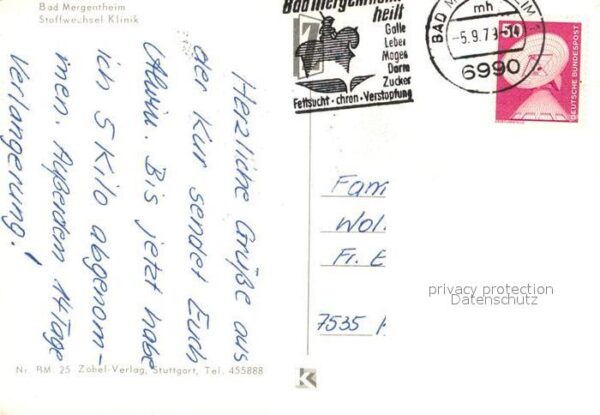 Bad Mergentheim
Stoffwechsel Klinik
Herzliche Grüße aus
der Kur sendet Euch
Alwin. Bis jetzt habe
ich 5 Kilo abgenom-
men. Außerdem 14 Tage
Verlängerung!
Nr. BM. 25 Zobel-Verlag, Stuttgart, Tel. 455888
Bad Mergentheim
heilt
Galle
Leber
Magen
Darm
Zucker
Fettsucht · chron · Verstopfung
BAD M
mh
-5.9.7
6990
50
DEUTSCHE BUNDESPOST
Fam
Wol
Fr. E
privacy protection
Datenschutz
7535
K